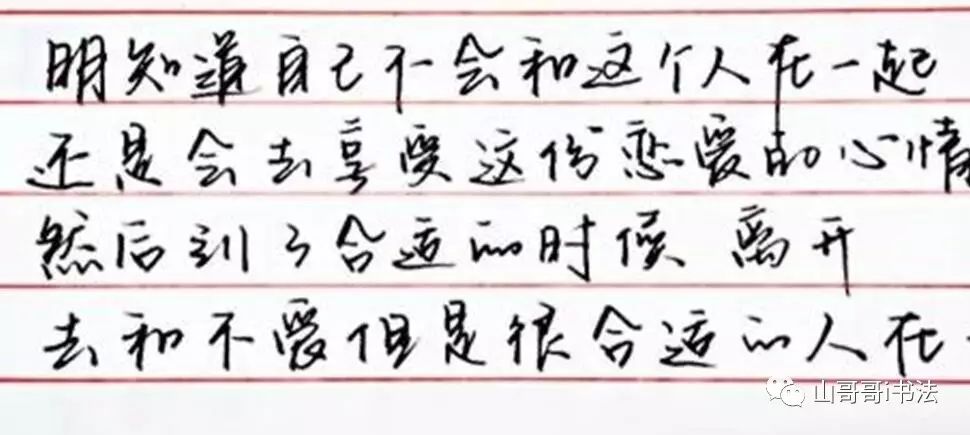 明知道自己不会和这个人在一起
还是会去享受这份恋爱的心情
然后到了合适的时候 离开
去和不爱但是很合适的人在
山哥哥i书法